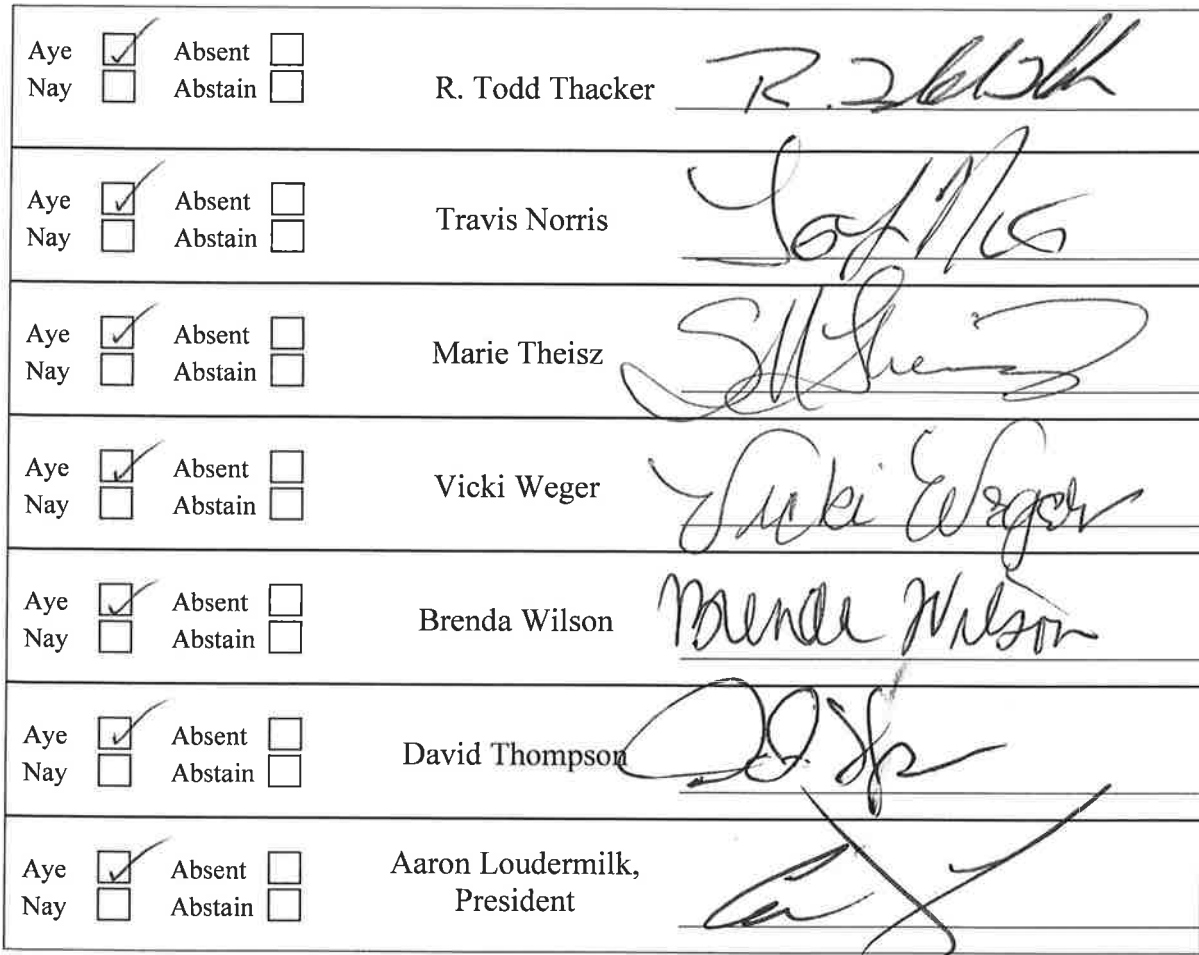 Aye ☑ Absent ☐
Nay ☐ Abstain ☐
R. Todd Thacker
Aye ☑ Absent ☐
Nay ☐ Abstain ☐
Travis Norris
Aye ☑ Absent ☐
Nay ☐ Abstain ☐
Marie Theisz
Aye ☑ Absent ☐
Nay ☐ Abstain ☐
Vicki Weger Vicki Weger
Aye ☑ Absent ☐
Nay ☐ Abstain ☐
Brenda Wilson Brenda Wilson
Aye ☑ Absent ☐
Nay ☐ Abstain ☐
David Thompson
Aye ☑ Absent ☐
Nay ☐ Abstain ☐
Aaron Loudermilk,
President